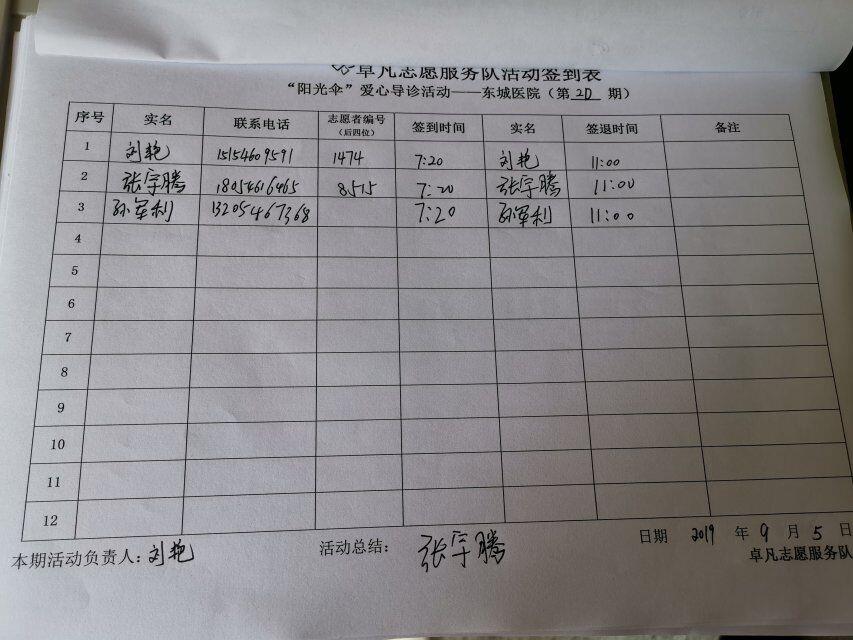 卓凡志愿服务队活动签到表
“阳光伞”爱心导诊活动——东城医院（第 20 期）
序号 实名 联系电话 志愿者编号（后四位） 签到时间 实名 签退时间 备注
1 刘艳 15154609591 1474 7:20 刘艳 11:00
2 张宇腾 18054616465 8515 7:20 张宇腾 11:00
3 孙军利 13205467368 7:20 孙军利 11:00
4
5
6
7
8
9
10
11
12
本期活动负责人：刘艳 活动总结： 张宇腾 日期 2019 年 9 月 5 日
卓凡志愿服务队